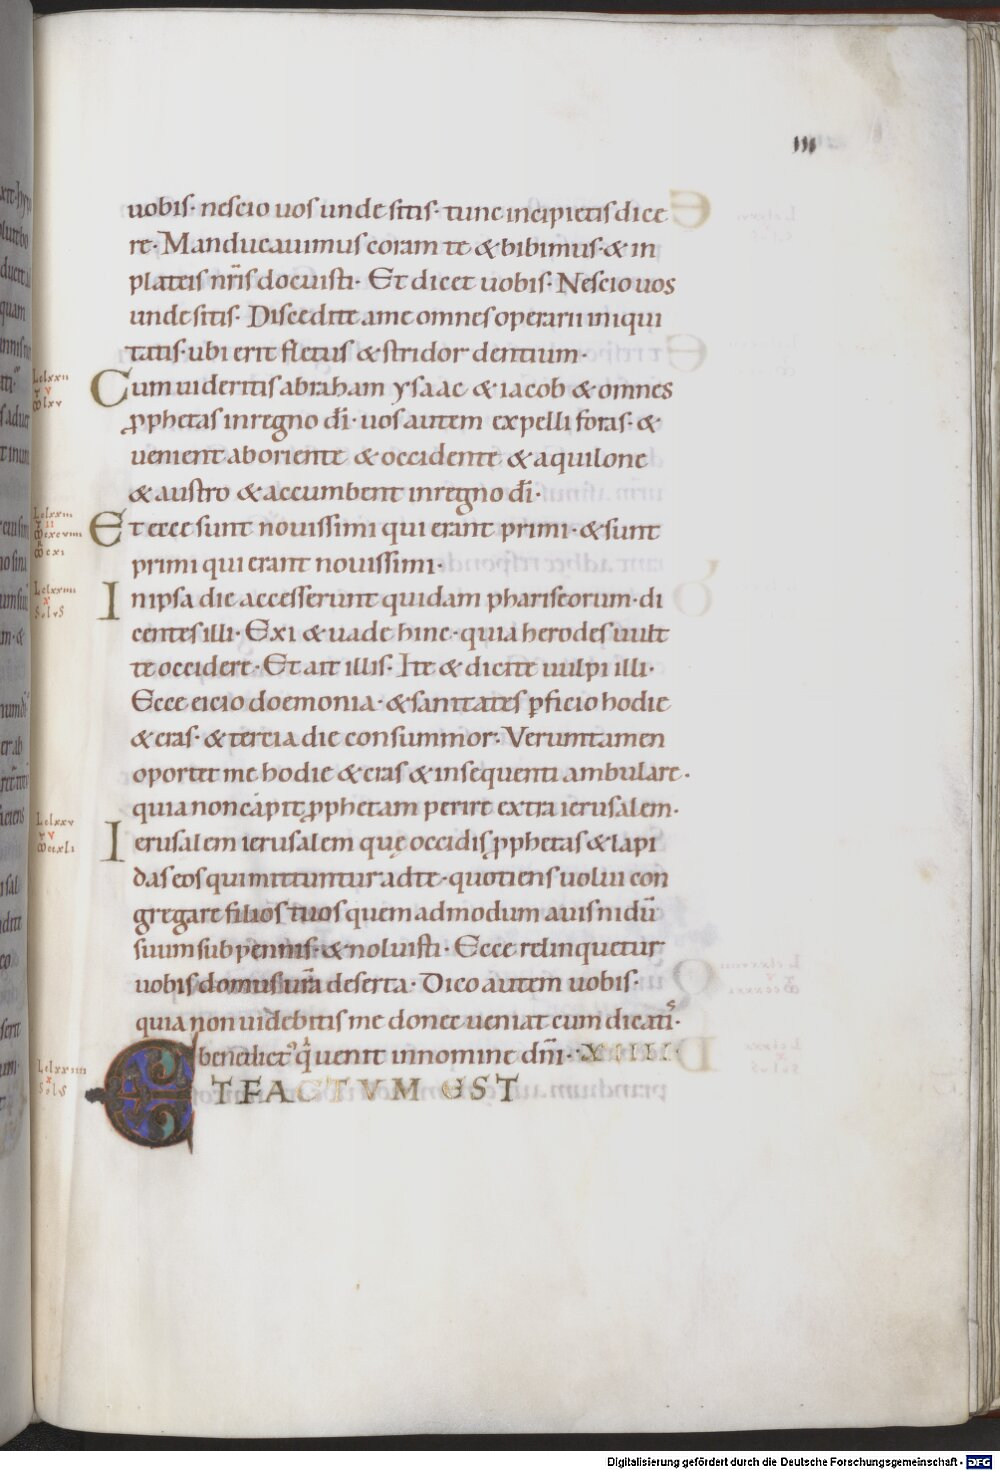 uobis· nescio uos unde sitis· tunc incipietis dice
re· Manducauimus coram te & bibimus· & in
plateis nr̄is docuisti· Et dicet uobis· Nescio uos
unde sitis· Discedite a me omnes operarii iniqui
tatis· ubi erit fletus & stridor dentium·
Cum uideritis abraham ysaac & iacob & omnes
ꝓphetas in regno dī· uos autem expelli foras· &
uenient ab oriente & occidente & aquilone
& austro & accumbent in regno dī·
Et ecce sunt nouissimi qui erant primi· & sunt
primi qui erant nouissimi·
In ipsa die accesserunt quidam phariseorum· di
centes illi· Exi & uade hinc· quia herodes uult
te occidere· Et ait illis· Ite & dicite uulpi illi·
Ecce eicio doemonia· & sanitates ꝑficio hodie
& cras· & tercia die consummor· Veruntamen
oportet me hodie & cras & insequenti ambulare·
quia non capit ꝓphetam perire extra ierusalem·
Ierusalem ierusalem quę occidis ꝓphetas & lapi
das eos qui mittuntur ad te· quotiens uolui con
gregare filios tuos quemadmodum auis nidū
suum sub pennis· & noluisti· Ecce relinquetur
uobis domus ur̄a deserta· Dico autem uobis·
quia non uidebitis me donec ueniat cum dicatiˢ·
benedictꝰ qͥ uenit in nomine dn̄i· XIIII·
ET FACTVM EST
Lclxxii
v
Lclxxiii
II
Lclxxiiii
x
Solus
Lclxxv
v
Lclxxiiii
x
Solus
Digitalisierung gefördert durch die Deutsche Forschungsgemeinschaft - DFG